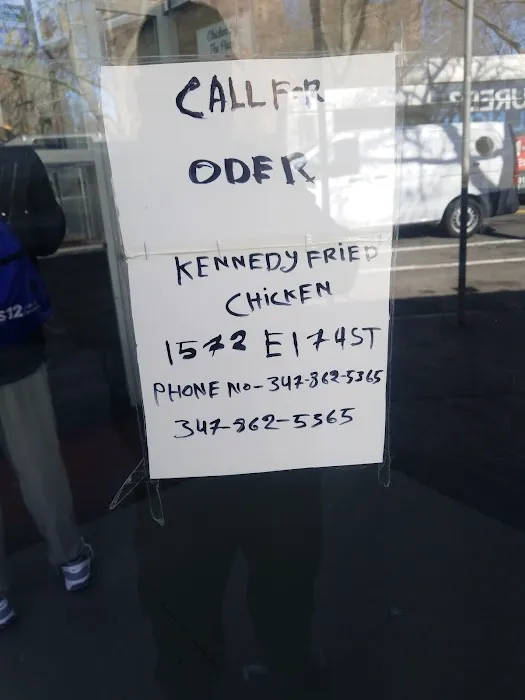 CALL FOR
ODER
KENNEDY FRIED
CHICKEN
1572 E174ST
PHONE No-347-862-5365
347-862-5565